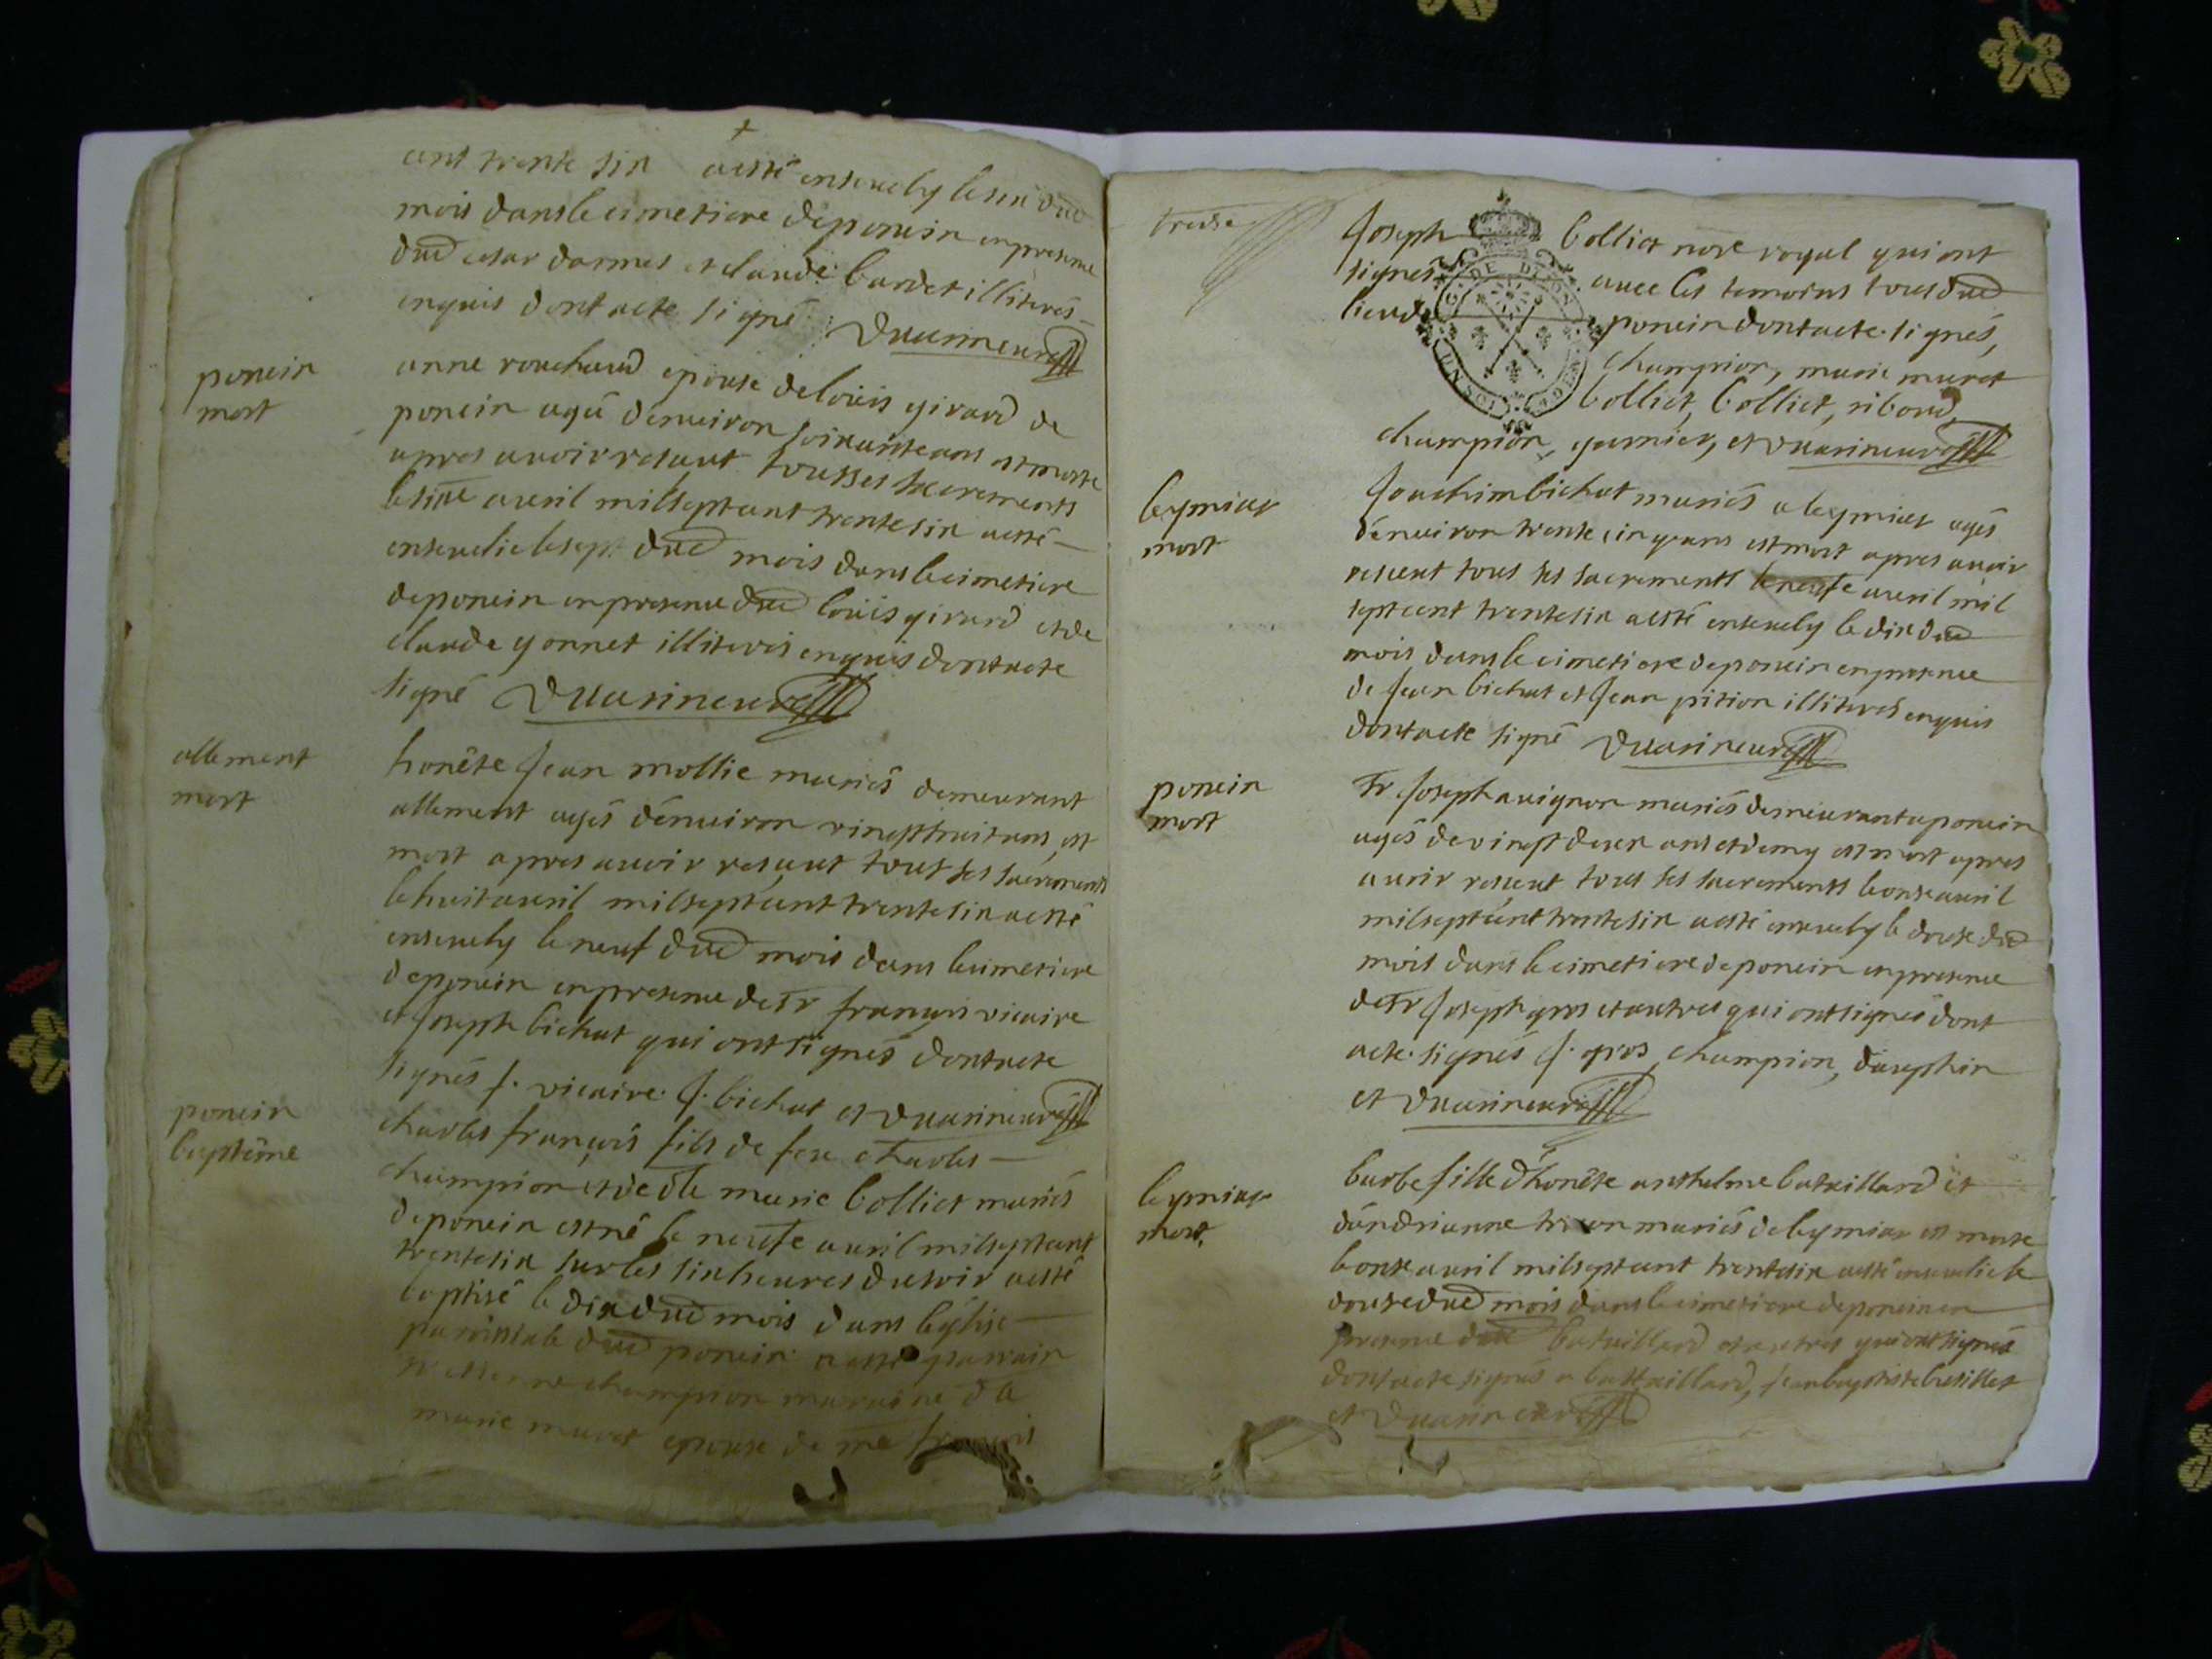 cent trente six a esté ensevely le six dud
mois dans le cimetiere de poncin en presence
dud cesar darmes et claude bardet illiterés
enquis dont acte signé Duvarineure
poncin
mort
anne rouchaud epouse de loüis girard de
poncin agée d'enuiron soixante ans est morte
apres auoir reseut tousses sacrements
le sixe auril mil sept cent trente six a esté
enseuelie le sept dud mois dans le cimetiere
de poncin en presence dud loüis girard et de
claude yonnet illiterés enquis dont acte
signé Duvarineure
allement
mort
honête Jean mollie mariés demeurant
allement agés d'enuiron vingt huit ans, est
mort apres auoir reseut tout ses sacrements
le huit auril mil sept cent trente six a esté
ensevely le neuf dud mois dans le cimetiere
de poncin en presence de Sr françois vicaire
et Joseph bichat qui ont signés dont acte
signés f. vicaire. J. bichat et Duvarineure
poncin
baptême
charles françois fils de feu charles
champion et de dlle marie Colliet mariés
de poncin est né le neufe auril mil sept cent
trente six sur les six heures du soir a esté
baptisé le dix dud mois dans l'eglise
parroissiale dud poncin a esté parrain
Sr champion marraine dlle
marie muret epouse de me françois
treise
Joseph Colliet nore royal qui ont
signés avec les temoins tous dud
lieu de poncin dont acte. signés,
champion, marie muret
Colliet, Colliet, ribond,
champion, garnier, et Duvarineure
G. DE DIJON
UN SOL
leymiat
mort
Joachim bichat mariés a leymiat agés
d'enuiron trente cinq ans est mort apres auoir
reseut tous ses sacrements le neufe auril mil
sept cent trente six a esté ensevely le dix dud
mois dans le cimetiere de poncin en presence
de Jean bichat et Jean pition illiterés enquis
dont acte signé Duvarineure
poncin
mort
Sr Joseph auignon mariés demeurant a poncin
agés de vingt deux ans et demy est mort apres
auoir reseut tous ses sacrements le onze auril
mil sept cent trente six a esté ensevely le douze dud
mois dans le cimetiere de poncin en presence
de Sr Joseph gros et autres qui ont signés dont
acte. signés J. gros, champion, dauphin
et Duvarineure
leymiat
mort,
barbe fille d'honête anthelme bataillard et
d'andrianne mariés de leymiat est morte
le onze auril mil sept cent trente six a esté enseuelie le
douze dud mois dans le cimetiere de poncin en
presence dud bataillard et autres qui ont signés
dont acte signés a battaillard, jean baptiste
et Duvarineure